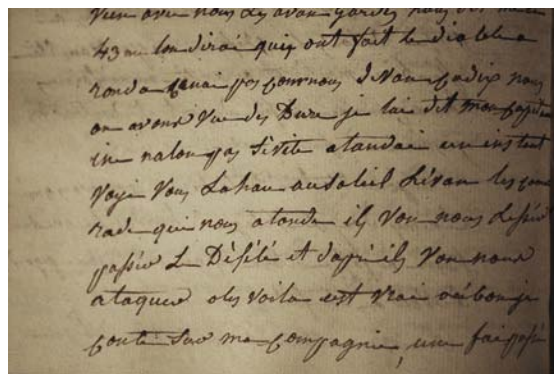 43 an lon dirai quis ont fait le diable a
ronda quai pas pour nous devan Cadix nous
en avons vue des Dure je lui dit mon capita
ine nalon pas si vite atandai un instent
voyé vous Lahau au soleil Levan les cama
rade qui nous atande ils von nous lessér
passér Le Défilé et daprè ils von nous
ataquer oles voila est vrai aubon je
conte sur ma compagnie, une fai passé